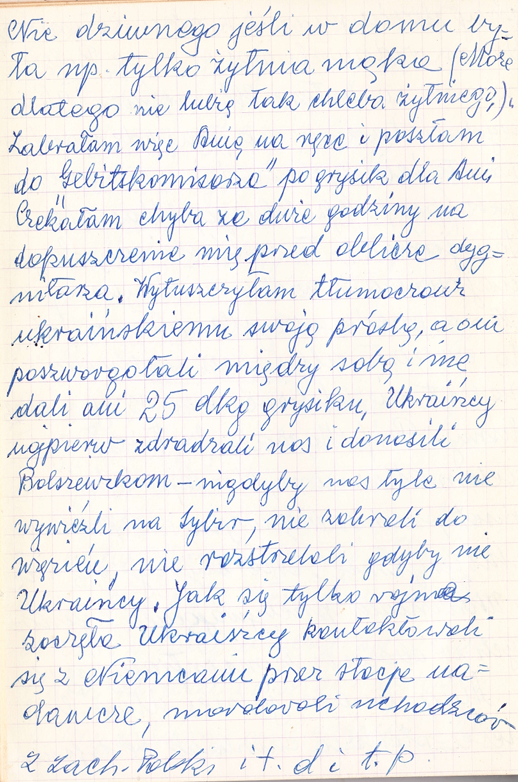 Nic dziwnego jeśli w domu by=
ła np. tylko żytnia mąka (Może
dlatego nie lubię tak chleba żytniego,).
Zabrałam więc Anię na ręce i poszłam
do "Gebitskomisarza" po grysik dla Ani
Czekałam chyba ze dwie godziny na
dopuszczenie mię przed oblicze dyg=
nitarza. Wyłuszczyłam tłumaczowi
ukraińskiemu swoją prośbę, a oni
poszwargotali między sobą i nie
dali ani 25 dkg grysiku, Ukraińcy
najpierw zdradzali nas i donosili
Bolszewikom – nigdyby nas tyle nie
wywieźli na Sybir, nie zabrali do
więzień, nie rozstrzelali gdyby nie
Ukraińcy. Jak się tylko wojna
zaczęła Ukraińcy kontaktowali
się z Niemcami przez stacje na=
dawcze, mordowali uchodźców
z zach. Polski i t. d i t. p.